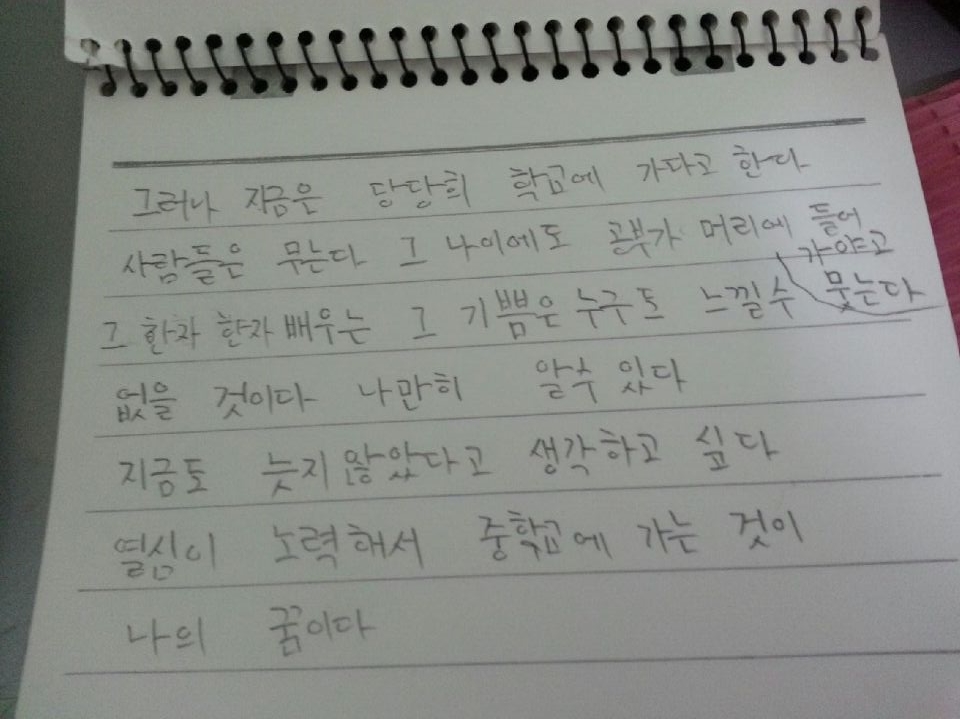 그러나 지금은 당당희 학교에 가다고 한다
사람들은 무는다 그 나이에도 공부가 머리에 들어
가야고
뭇는다
그 한자 한자 배우는 그 기쁨은 누구도 느낄수
없을 것이다 나만히 알수 있다
지금도 늦지 않았다고 생각하고 싶다
열심이 노력해서 중학교에 가는 것이
나의 꿈이다